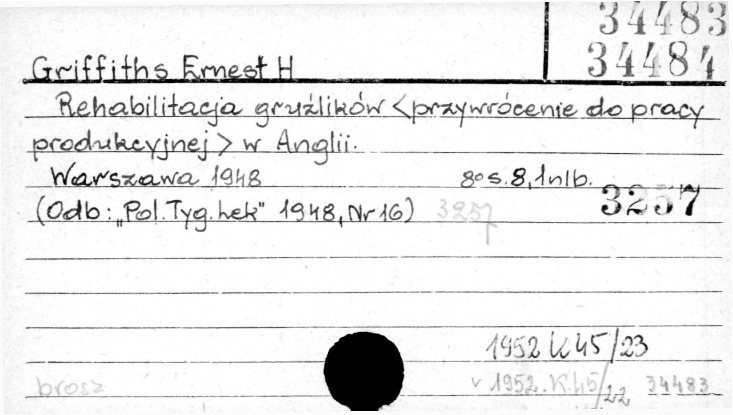 34483
34484
Griffiths Ernest H
Rehabilitacja gruźlików <przywrócenie do pracy
produkcyjnej> w Anglii.
Warszawa 1948 8o s. 8, 1 nlb.
(Odb: "Pol. Tyg. Lek" 1948, Nr 16) 3257 3257
1952 K 45/23
brosz v 1952. K.45/22 34483